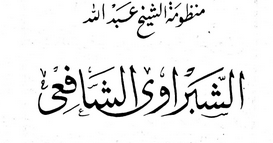 منظومة الشيخ عبد الله
الشبراوى الشافعى